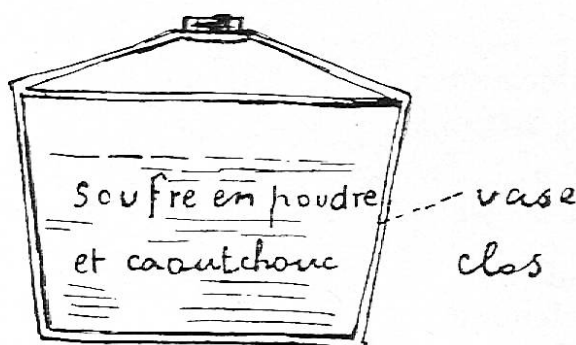 Soufre en poudre
et caoutchouc
vase
clos